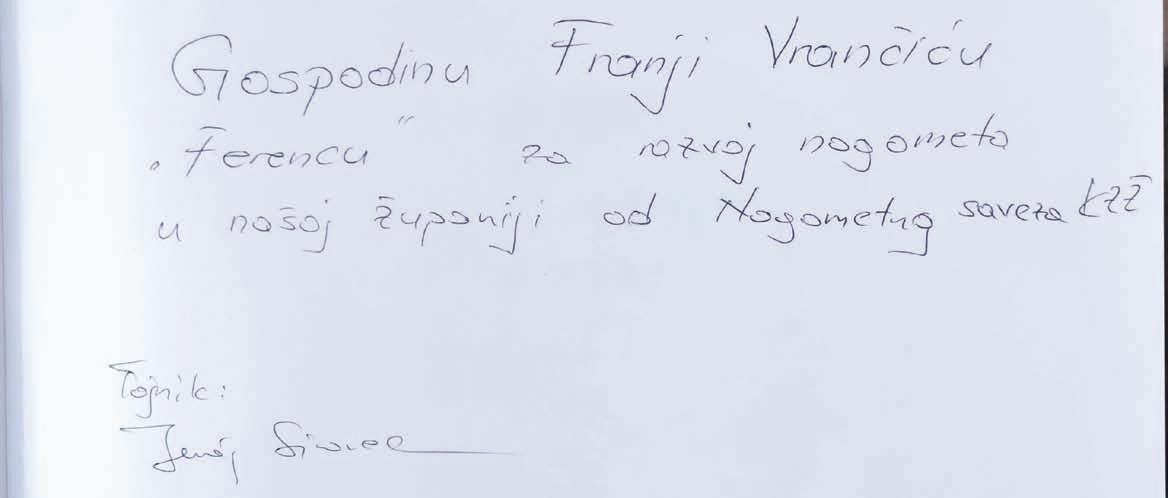 Gospodinu Franji Vrančiću
„Ferencu“ za razvoj nogometa
u našoj županiji od Nogometnog saveza KZŽ
Tajnik: